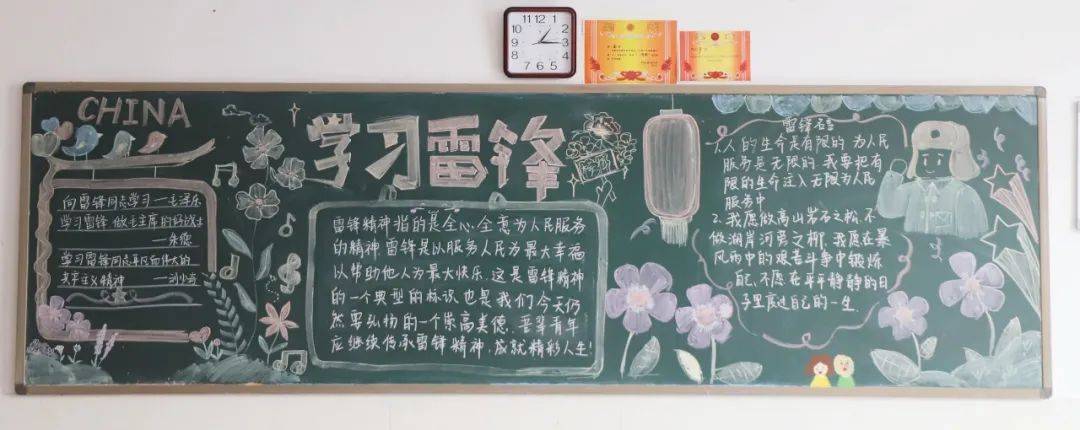 CHINA
向雷锋同志学习——毛泽东
学习雷锋 做毛主席的好战士
——朱德
学习雷锋同志平凡而伟大的
共产主义精神 ——刘少奇
学习雷锋
雷锋精神指的是全心全意为人民服务
的精神.雷锋是以服务人民为最大幸福
以帮助他人为最大快乐.这是雷锋精神
的一个典型的标识.也是我们今天仍
然要弘扬的一个崇高美德.吾辈青年
应继续传承雷锋精神,成就精彩人生!
雷锋名言
1.人的生命是有限的 为人民
服务是无限的.我要把有
限的生命注入无限为人民
服务中
2.我愿做高山岩石之松,不
做湖岸河旁之柳.我愿在暴
风雨中的艰苦斗争中锻炼
自己,不愿在平平静静的日
子里度过自己的一生.
12
11 1
10 2
9 3
8 4
7 6 5